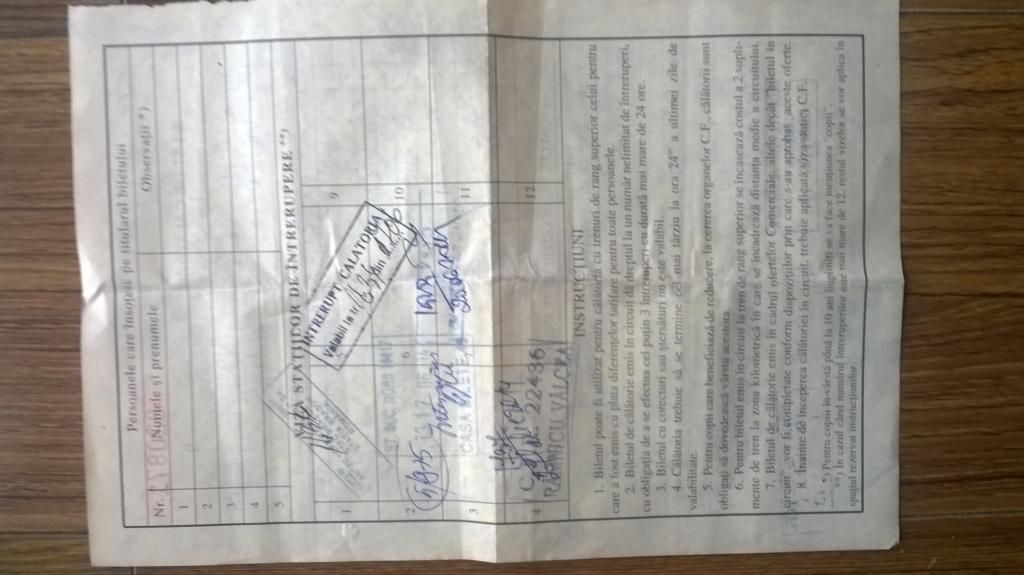 Persoanele care însoțesc pe titularul biletului
Nr.
Numele și prenumele
Observații *)
1
2
3
4
5
VIZA STAȚIILOR DE ÎNTRERUPERE **)
1
9
ÎNTRERUPT CĂLĂTORIA
Valabil la tr.
din
6
2
10
3
11
CASA
4
12
22436
RÂMNICU VÂLCEA
INSTRUCȚIUNI
1. Biletul poate fi utilizat pentru călătorii cu trenuri de rang superior celui pentru
care a fost emis cu plata diferențelor tarifare pentru toate persoanele.
2. Biletul de călătorie emis în circuit dă dreptul la un număr nelimitat de întreruperi,
cu obligația de a se efectua cel puțin 3 întreruperi cu durată mai mare de 24 ore.
3. Biletul cu corecturi sau ștersături nu este valabil.
4. Călătoria trebuie să se termine cel mai târziu la ora 24 a ultimei zile de
valabilitate.
5. Pentru copii care beneficiază de reducere, la cererea organelor C.F., călătorii sunt
obligați să dovedească vârsta acestora.
6. Pentru biletul emis în circuit la tren de rang superior se încasează costul a 2 supli-
mente de tren la zona kilometrică în care se încadrează distanța medie a circuitului.
7. Biletul de călătorie emis în cadrul ofertelor Comerciale, altele decât "biletul în
circuit" vor fi completate conform dispozițiilor prin care s-au aprobat aceste oferte.
8. Înainte de începerea călătoriei în circuit, trebuie aplicată viza stației C.F.
*) Pentru copiii în vârstă până la 10 ani împliniți se va face mențiunea "copii".
**) În cazul când numărul întreruperilor este mai mare de 12, restul vizelor se vor aplica în
spațiul rezervat instrucțiunilor.